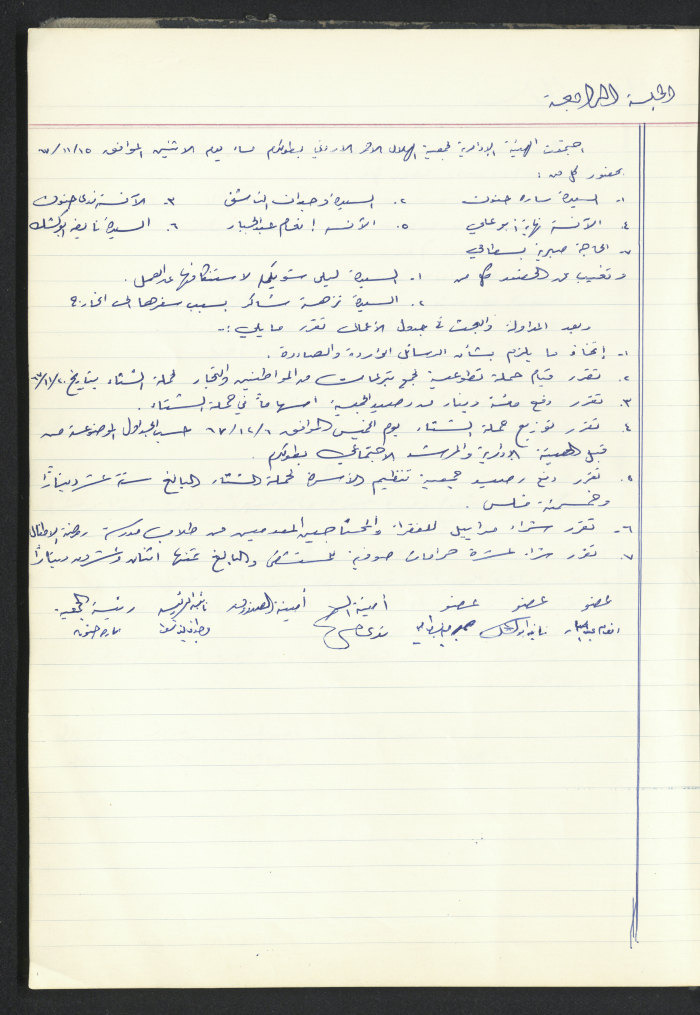 الجلسة الرابعة
اجتمعت الهيئة الإدارية لجمعية الهلال الأحمر الأردني بطولكرم مساء يوم الاثنين الموافق ٦٧/١١/١٥
بحضور كل من :
١- السيدة ساره حنون ٢. السيدة وجدان الناشف ٣. الآنسة ندى حنون
٤. الآنسة نهاية أبو علي ٥. الآنسة إنعام عبد الجبار ٦. السيدة نايفه أبو كشك
٧- الحاجة صبرية بسطامي
وتغيب عن الحضور كل من ١- السيدة ليلى لاستنكافها عن العمل .
٢. السيدة نزهة شاكر بسبب سفرها الى الخارج
وبعد المداولة والبحث في جدول الأعمال تقرر ما يلي :-
١- إتخاذ ما يلزم بشأن الرسائل الواردة والصادرة .
٢. تقرر قيام حملة تطوعية لجمع تبرعات من المواطنين والتجار لحملة الشتاء بتاريخ ٦٧/١١/٢٠
٣. تقرر دفع مئة دينار من رصيد الجمعية اسهاماً في حملة الشتاء .
٤. تقرر توزيع حملة الشتاء يوم الخميس الموافق ٦٧/١٢/٦ حسب الجداول الموضوعة من
قبل الهيئة الإدارية والمرشد الاجتماعي بطولكرم .
٥. تقرر دمج رصيد جمعية تنظيم الأسرة لحملة الشتاء البالغ ستة عشر ديناراً
وخمسمئة فلس .
٦- تقرر شراء مراييل للفقراء والمحتاجين المعدومين من طلاب مدرسة روضة الاطفال
٧. تقرر شراء عشرة حرامات صوفية للمستشفى والبالغ ثمنها اثنان وعشرون ديناراً
عضو عضو عضو أمينة السر أمينة الصندوق نائبة الرئيسة رئيسة الجمعية
انعام عبد الجبار نايفه أبو كشك صبرية بسطامي ندى حنون وجدان الناشف ساره حنون